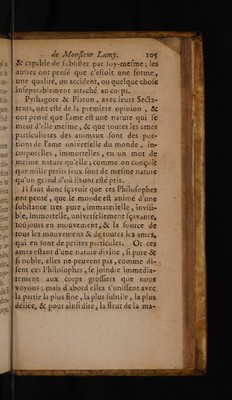 de Monsieur Lamy. 105
& capable de subsister par soy-mesme; les
autres ont pensé que c'estoit une forme,
une qualité, un accident, ou quelque chose
inseparablement attaché au corps.
Pythagore & Platon, avec leurs Secta-
teurs, ont esté de la premiere opinion, &
ont pensé que l'ame est une nature qui se
meut d'elle mesme, & que toutes les ames
particulieres des animaux sont des por-
tions de l'ame universelle du monde, in-
corporelles, immortelles, en un mot de
mesme nature qu'elle, comme on conçoit
que mille petits feux sont de mesme nature
qu'un grand d'où ils ont esté pris.
Il faut donc sçavoir que ces Philosophes
ont pensé, que le monde est animé d'une
substance tres pure, immaterielle, invisi-
ble, immortelle, universellement sçavante,
toujours en mouvement, & la source de
tous les mouvemens & de toutes les ames,
qui en sont de petites particules. Or ces
ames estant d'une nature divine, si pure &
si noble, elles ne peuvent pas, comme di-
sent ces Philosophes, se joindre immedia-
tement aux corps grossiers que nous
voyons; mais d'abord elles s'unissent avec
la partie la plus fine, la plus subtile, la plus
déliée, & pour ainsi dire, la fleur de la ma-